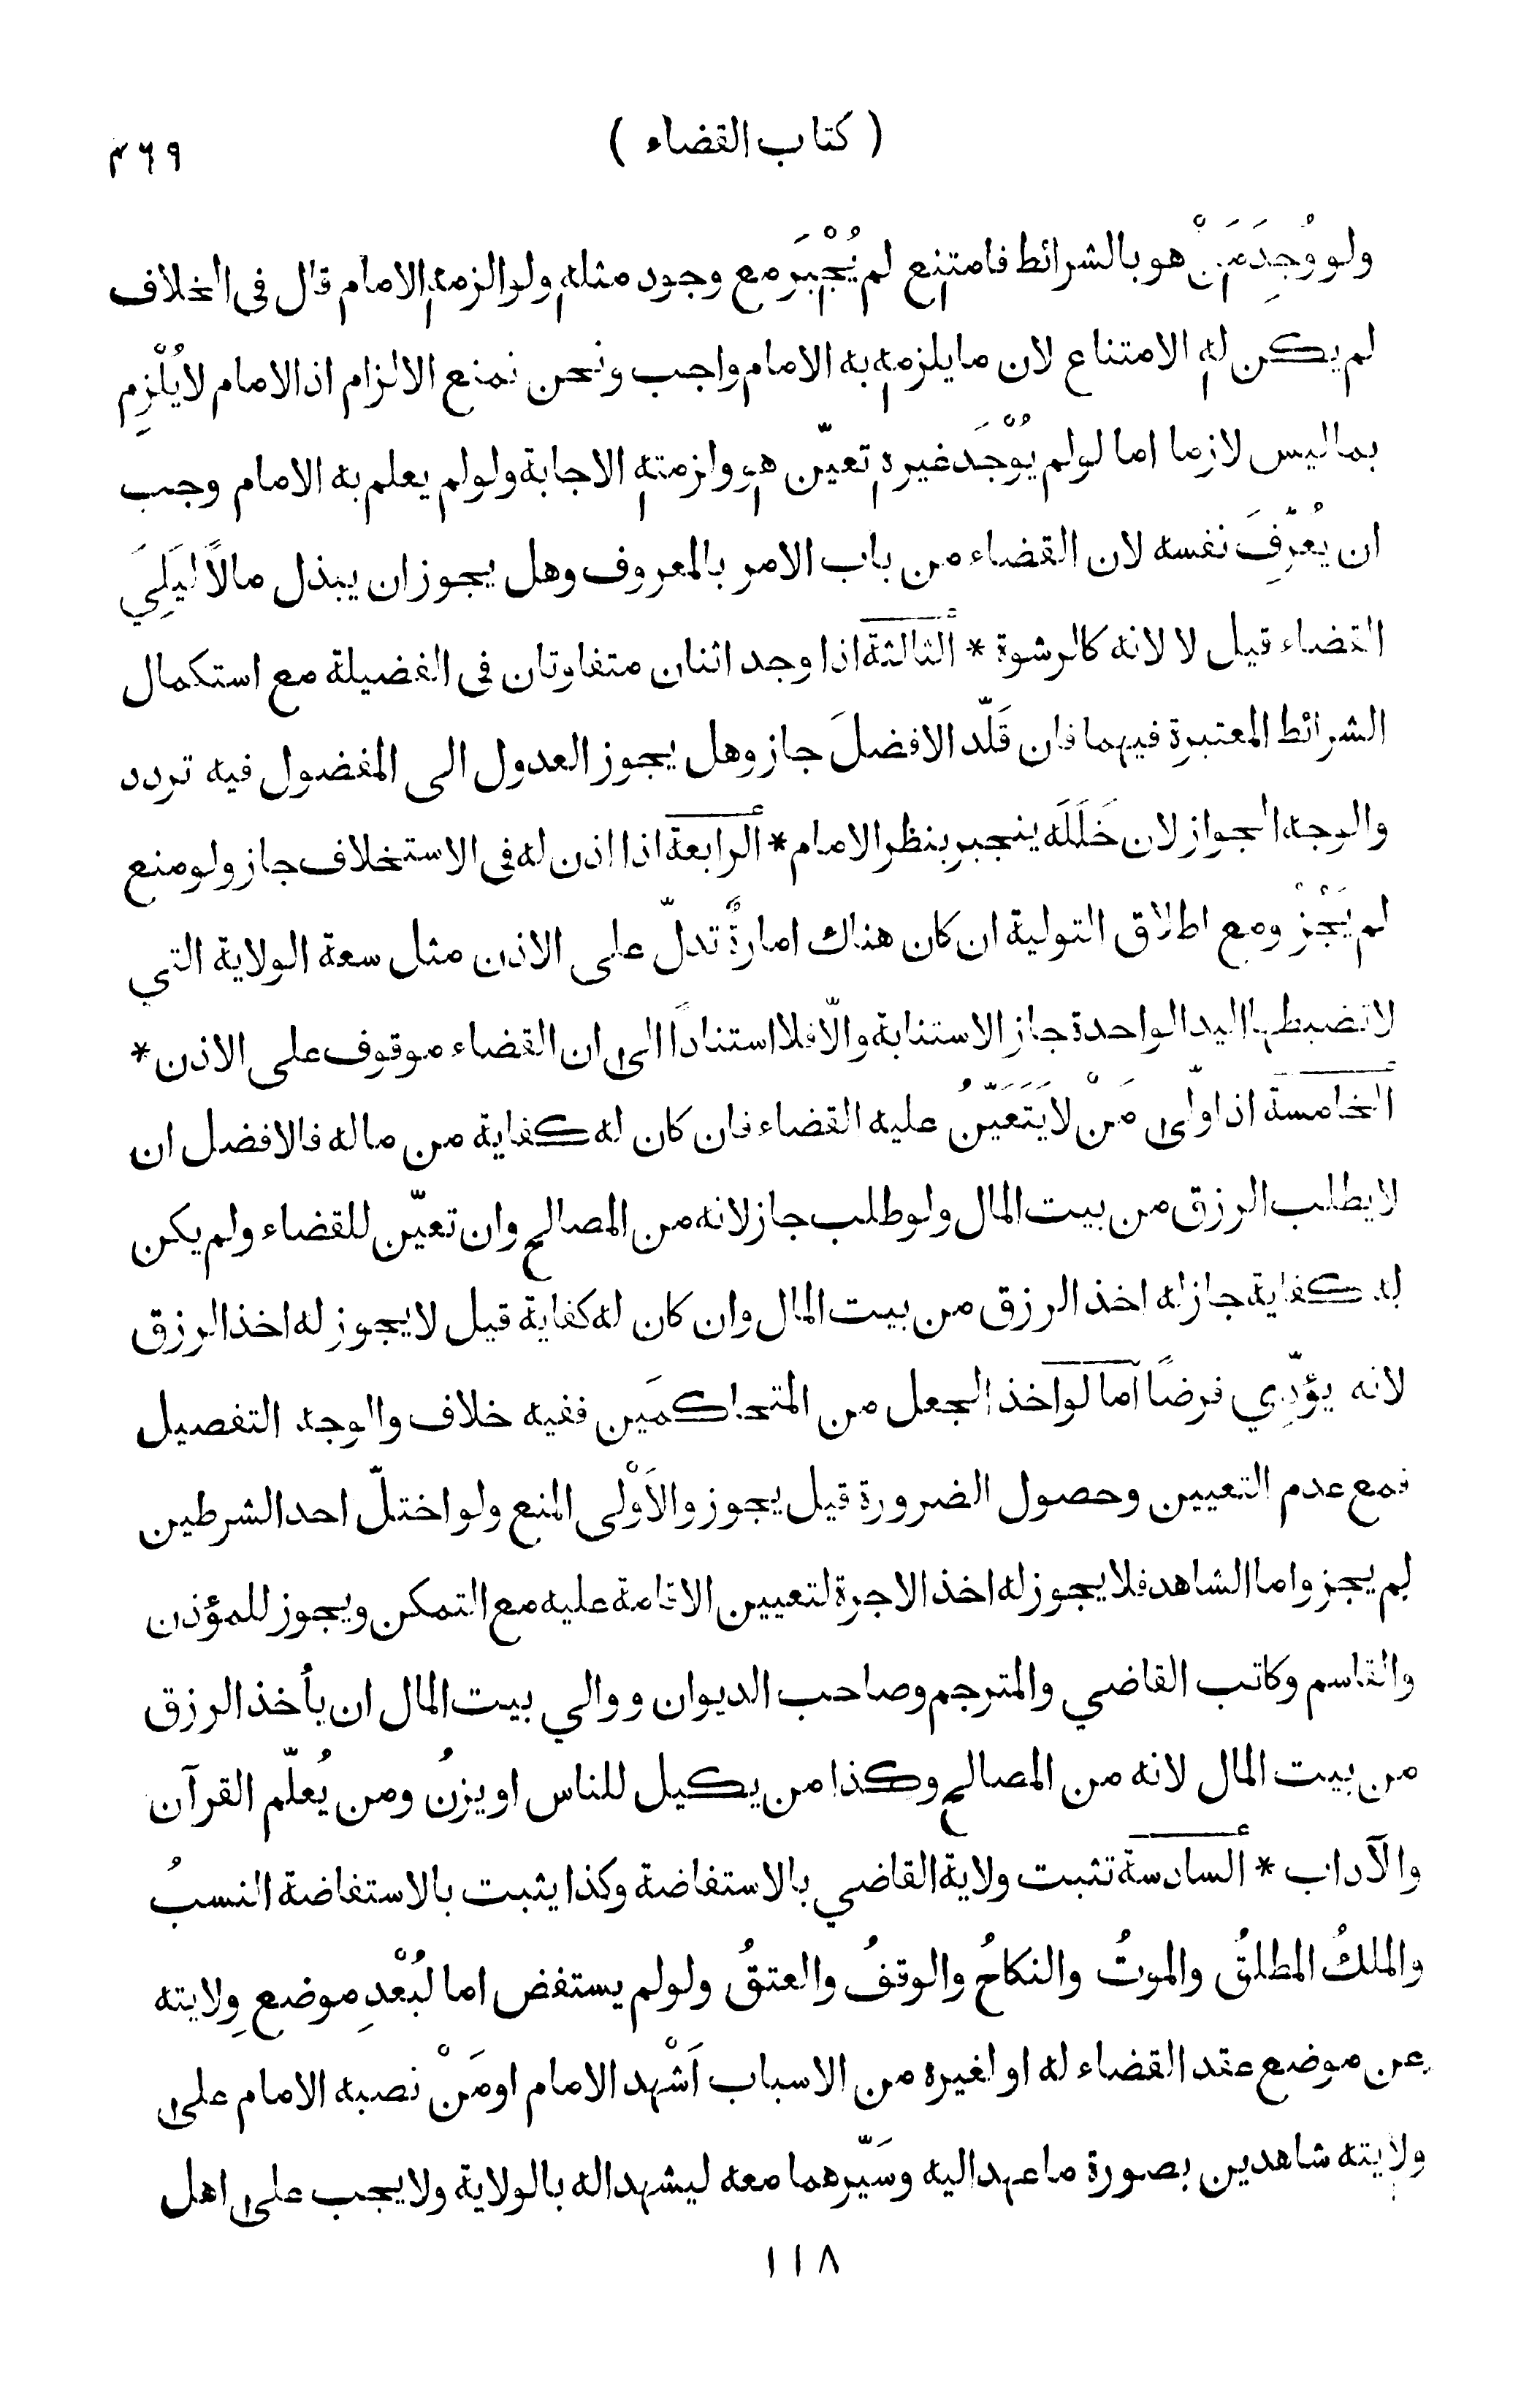 ( كتاب القضاء )
٤٦٩
ولو وُجِدَ مَنْ هو بالشرائط فامتنع لم يُجْبَر مع وجود مثله ولو الزمه الامام قال فى الخلاف
لم يكن له الامتناع لان ما يلزمه به الامام واجب ونحن نمنع الالزام اذ الامام لا يُلْزِم
بما ليس لازما اما لو لم يُوْجَد غيره تعيّن هو ولزمته الاجابة ولو لم يعلم به الامام وجب
ان يُعَرِّفَ نفسه لان القضاء من باب الامر بالمعروف وهل يجوز ان يبذل مالاً ليَلِيَ
القضاء قيل لا لانه كالرشوة * الثالثة اذا وجد اثنان متفاوتان فى الفضيلة مع استكمال
الشرائط المعتبرة فيهما فان قَلّد الافضلَ جاز وهل يجوز العدول الى المفضول فيه تردد
والوجه الجواز لان خَلَلَه ينجبر بنظر الامام * الرابعة اذا اذن له فى الاستخلاف جاز ولو منع
لم يَجُزْ ومع اطلاق التولية ان كان هناك امارةٌ تدلّ على الاذن مثل سعة الولاية التي
لا تضبطها اليد الواحدة جاز الاستنابة والّا فلا استنادًا الى ان القضاء موقوف على الاذن *
الخامسة اذا ولّى مَنْ لا يَتَعَيّنُ عليه القضاء فان كان له كفاية من ماله فالافضل ان
لا يطلب الرزق من بيت المال ولو طلب جاز لانه من المصالح وان تعيّن للقضاء ولم يكن
له كفاية جاز له اخذ الرزق من بيت المال وان كان له كفاية قيل لا يجوز له اخذ الرزق
لانه يؤدّي فرضًا اما لو اخذ الجعل من المتحاكمَين ففيه خلاف والوجه التفصيل
فمع عدم التعيين وحصول الضرورة قيل يجوز والاَوْلى المنع ولو اختلّ احد الشرطين
لم يجز واما الشاهد فلا يجوز له اخذ الاجرة لتعيين الاقامة عليه مع التمكن ويجوز للمؤذن
والقاسم وكاتب القاضي والمترجم وصاحب الديوان ووالي بيت المال ان يأخذ الرزق
من بيت المال لانه من المصالح وكذا من يكيل للناس او يزنُ ومن يُعلّم القرآن
والآداب * السادسة تثبت ولاية القاضي بالاستفاضة وكذا يثبت بالاستفاضة النسبُ
والملكُ المطلقُ والموتُ والنكاحُ والوقفُ والعتقُ ولو لم يستفض اما لبُعْدِ موضع وِلايته
عن موضع عقد القضاء له او لغيره من الاسباب اَشْهد الامام او مَنْ نصبه الامام على
ولايته شاهدين بصورة ما عهد اليه وسَيّرهما معه ليشهدا له بالولاية ولا يجب على اهل
١١٨